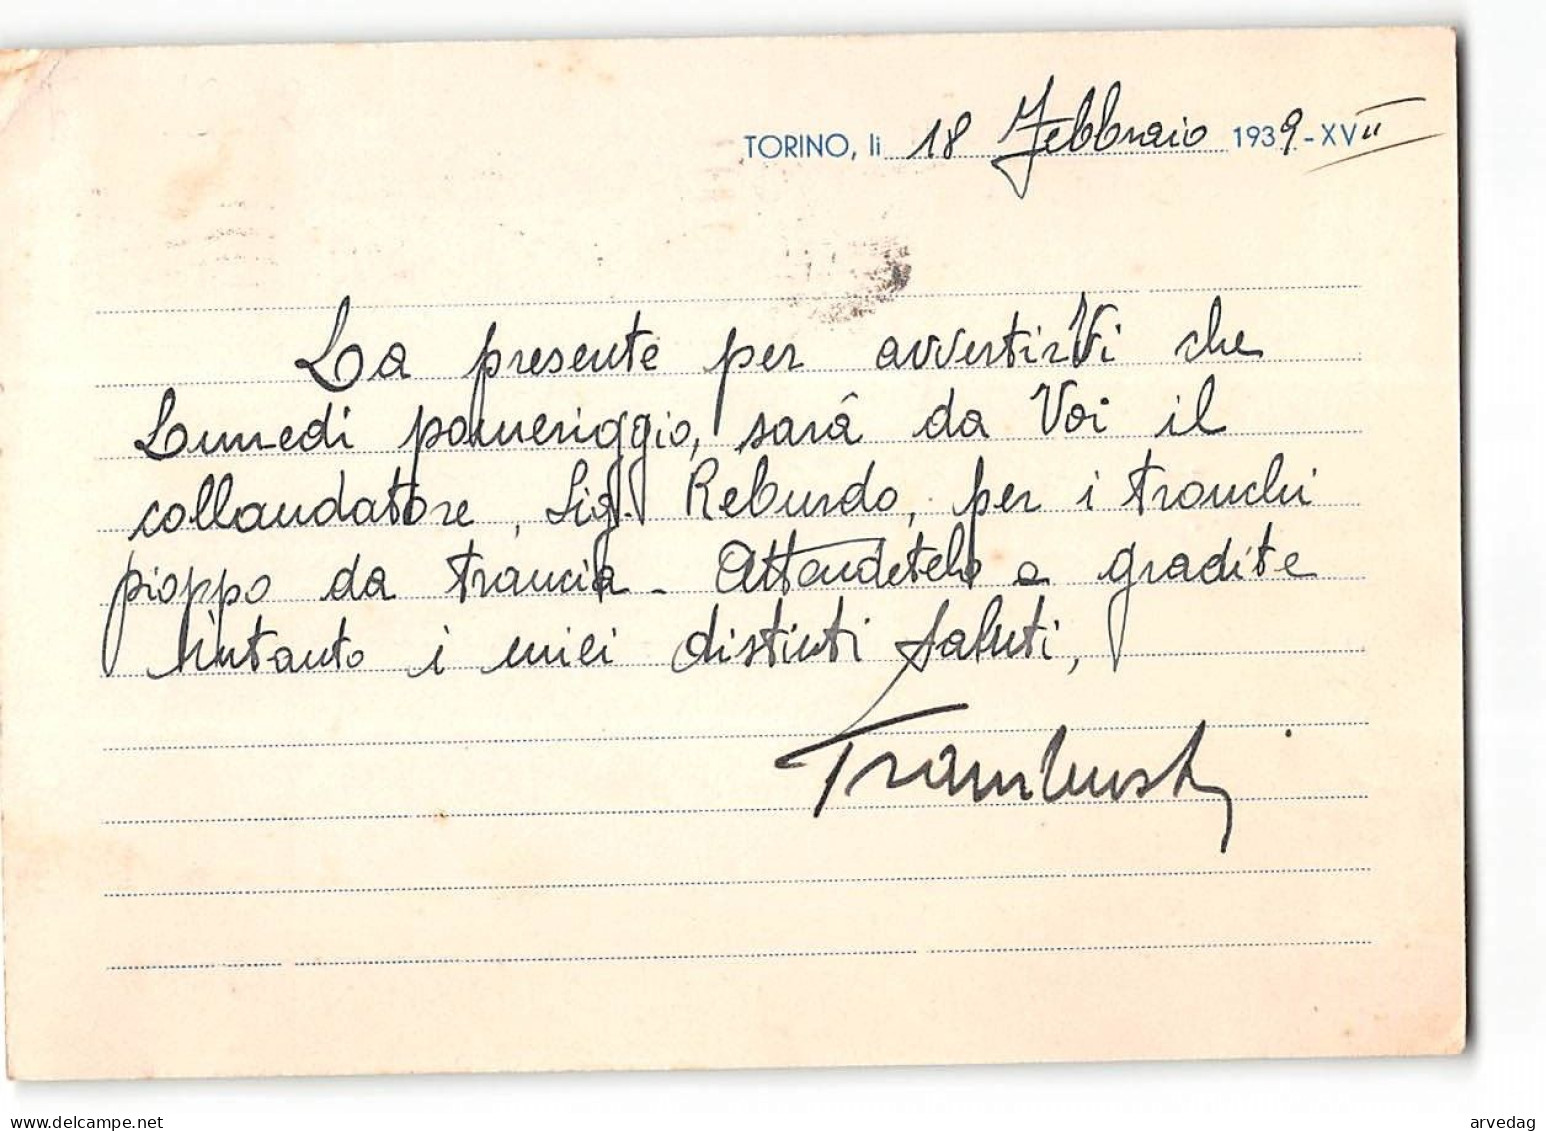 TORINO, li 18 Febbraio 1939-XVII
La presente per avvertirVi che
Lunedi pomeriggio, sarà da Voi il
collaudatore, Sig. Reburdo, per i tronchi
pioppo da trancia - Attendetelo e gradite
intanto i miei distinti saluti,
arvedag
© www.delcampe.net